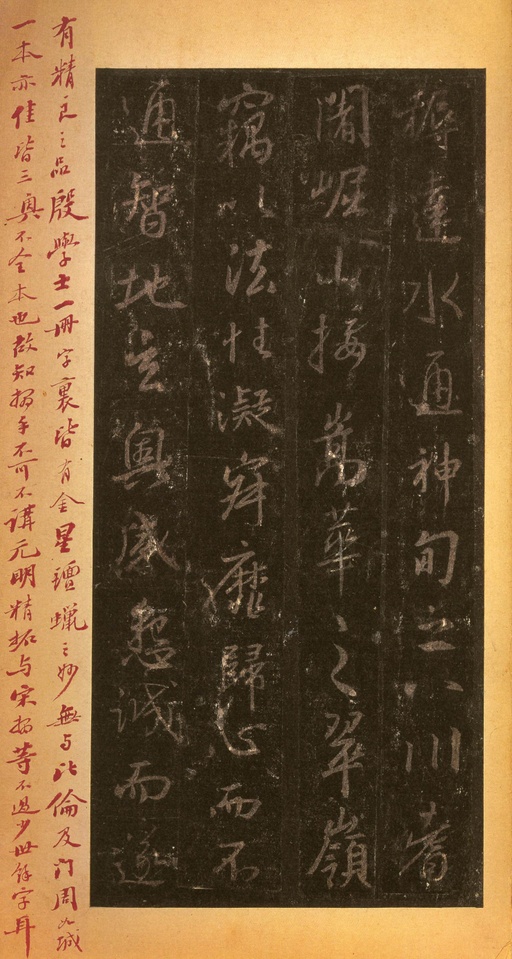 耨達水通神甸之八川耆
闍崛山接嵩華之翠嶺
竊以法性凝寂靡歸心而不
通智地玄奧感懇誠而遂
有精良之品殷學士一冊字裏皆有金星蜡之妙無与比倫及门周城
一本亦佳皆三奧不全本也故知搨手不可不講元明精拓与宋搨等不過少世餘字耳